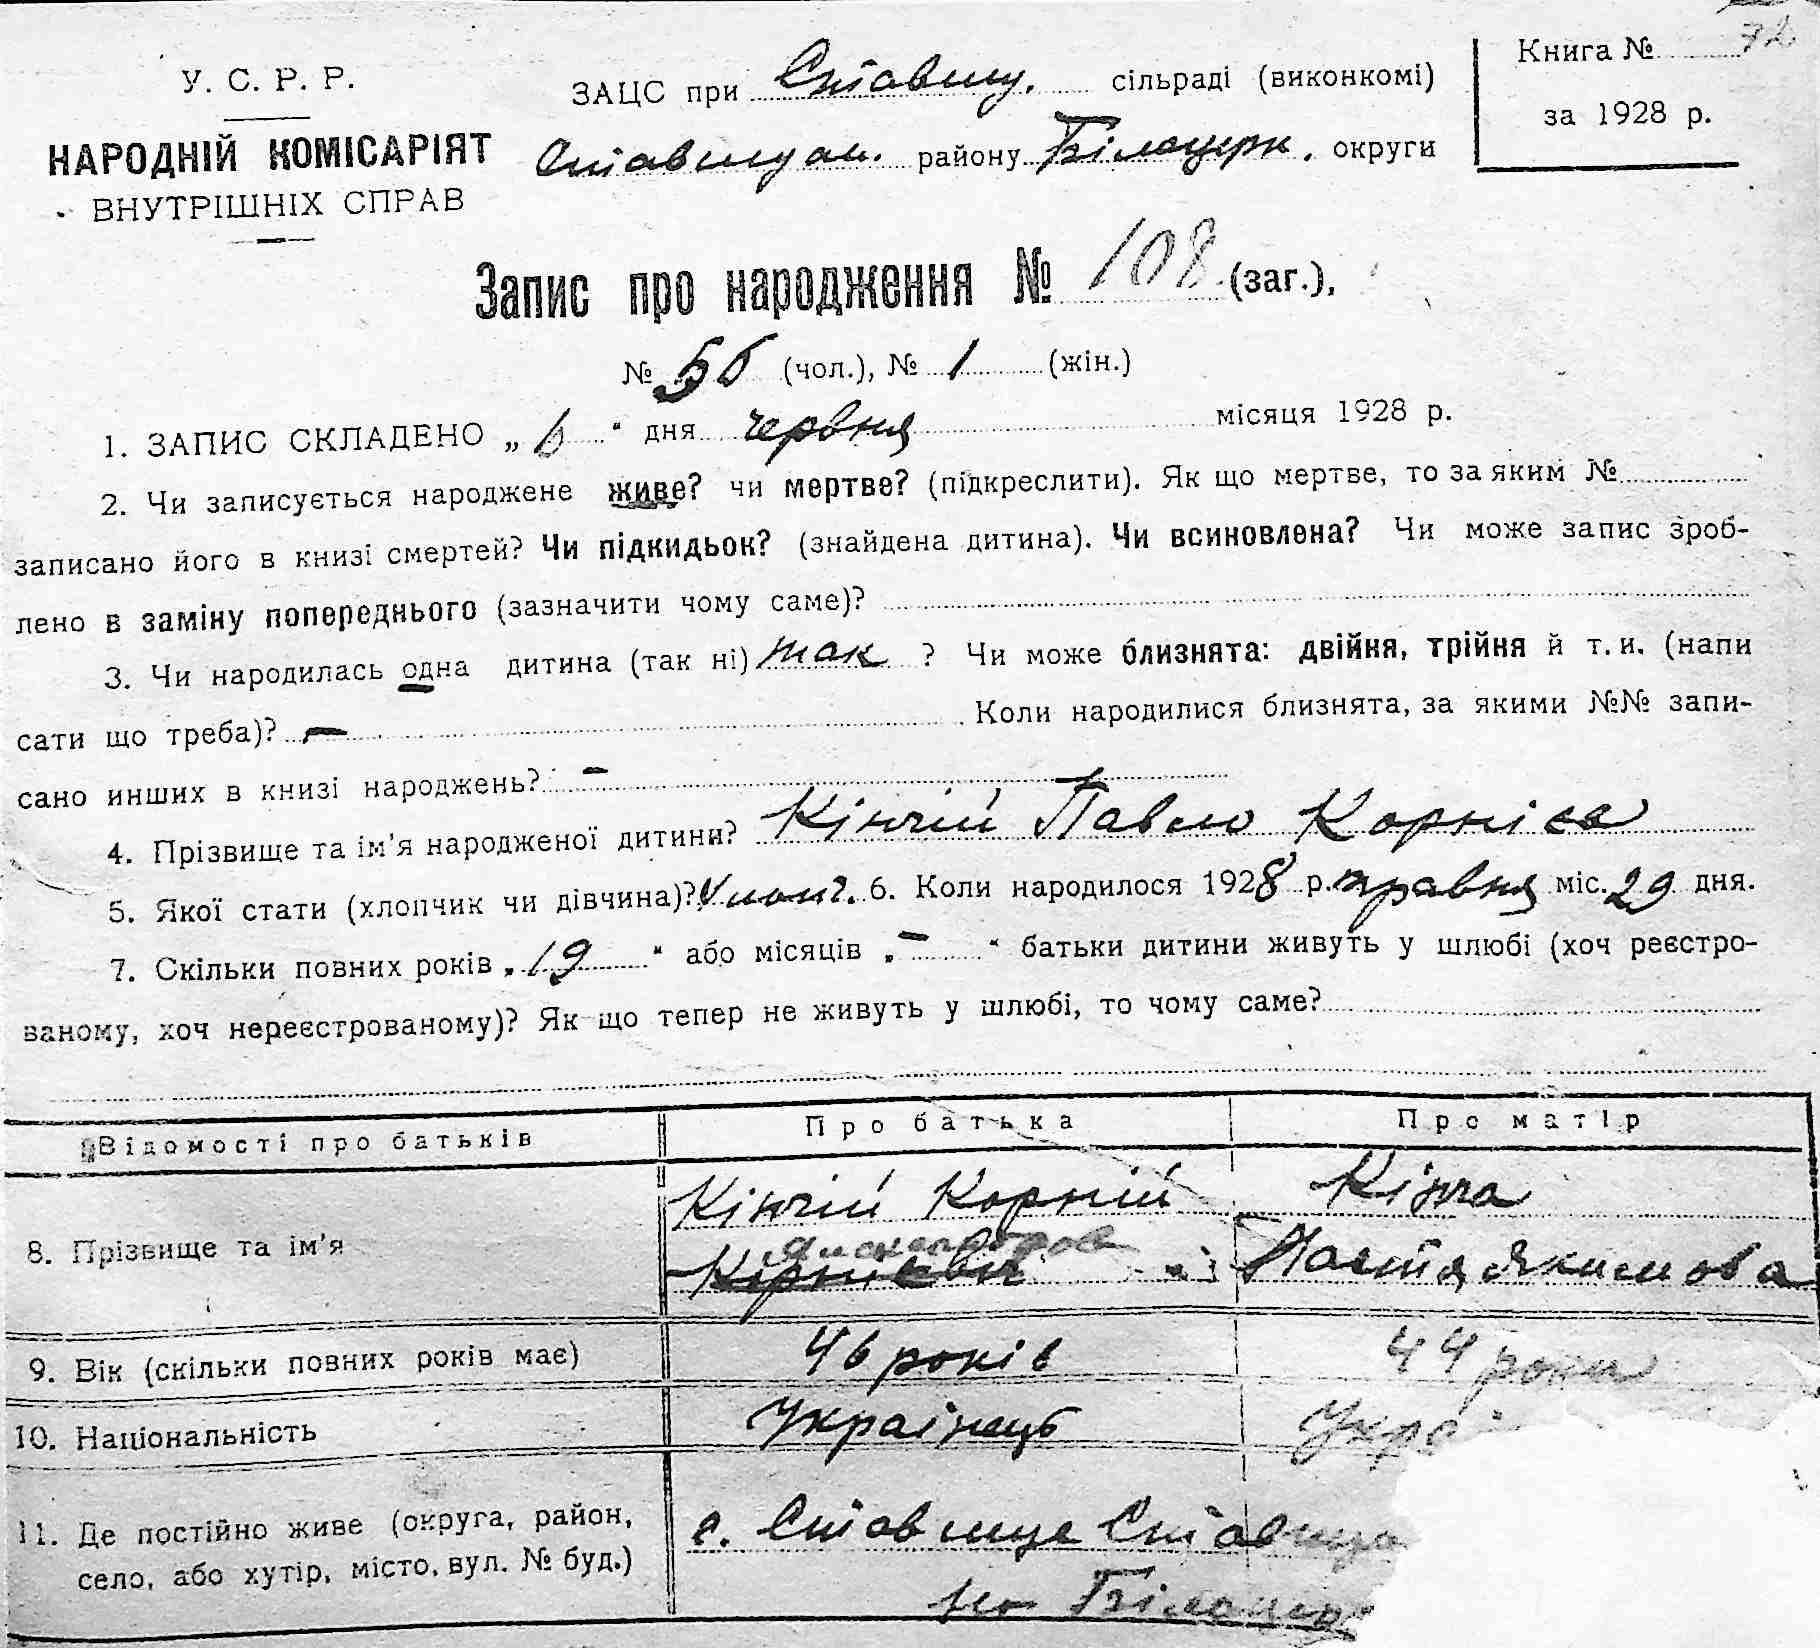 У. С. Р. Р.
НАРОДНІЙ КОМІСАРІЯТ
ВНУТРІШНІХ СПРАВ
ЗАЦС при Ставищ. сільраді (виконкомі)
Ставищан. району Білоцерк. округи
Книга № 72
за 1928 р.
Запис про народження № 108 (заг.),
№ 56 (чол.), № 1 (жін.)
1. ЗАПИС СКЛАДЕНО „ 6 “ дня червня місяця 1928 р.
2. Чи записується народжене живе? чи мертве? (підкреслити). Як що мертве, то за яким №
записано його в книзі смертей? Чи підкидьок? (знайдена дитина). Чи всиновлена? Чи може запис зроб-
лено в заміну попереднього (зазначити чому саме)?
3. Чи народилась одна дитина (так ні) так ? Чи може близнята: двійня, трійня й т. и. (напи
сати що треба)? — Коли народилися близнята, за якими №№ запи-
сано инших в книзі народжень? —
4. Прізвище та ім’я народженої дитини? Кінчій Павло Корнієв
5. Якої стати (хлопчик чи дівчина)? 6. Коли народилося 1928 р. травня міс. 29 дня.
7. Скільки повних років „ 19 “ або місяців „ — “ батьки дитини живуть у шлюбі (хоч реєстро-
ваному, хоч нереєстрованому)? Як що тепер не живуть у шлюбі, то чому саме?
Відомості про батьків Про батька Про матір
8. Прізвище та ім’я Кінчій Корній Кінча
Настя Якимова
9. Вік (скільки повних років має) 46 років 44 роки
10. Національність Українець Укра
11. Де постійно живе (округа, район, с. Ставище Ставищ
село, або хутір, місто, вул. № буд.) Білоцерк